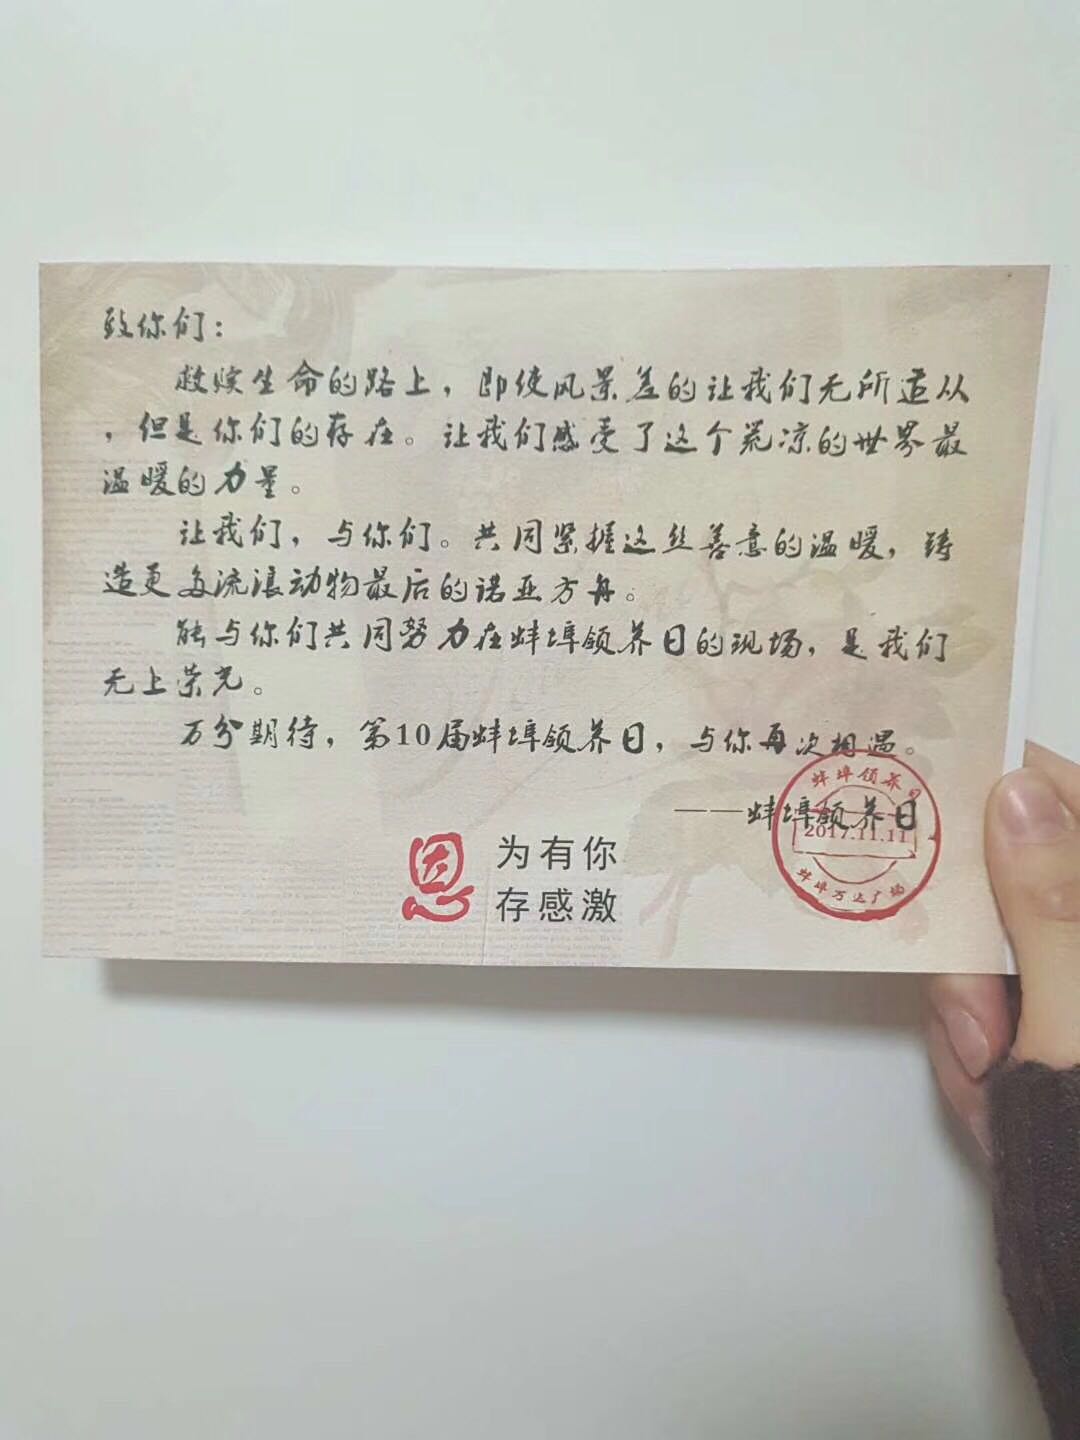 致你们：
救赎生命的路上，即使风景差的让我们无所适从
，但是你们的存在。让我们感受了这个荒凉的世界最
温暖的力量。
让我们，与你们。共同紧握这丝善意的温暖，铸
造更多流浪动物最后的诺亚方舟。
能与你们共同努力在蚌埠领养日的现场，是我们
无上荣光。
万分期待，第10届蚌埠领养日，与你再次相遇。
——蚌埠领养日
蚌埠领养日
2017.11.11
蚌埠万达广场
恩
为有你
存感激